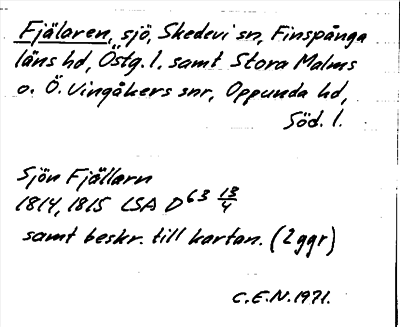 Fjälaren, sjö, Skedevi sn, Finspånga
läns hd, Östg. l. samt Stora Malms
o. Ö. Vingåkers snr, Oppunda hd,
Söd. l.
Sjön Fjällarn
1814, 1815 LSA D 63 13/4
samt beskr. till kartan. (2 ggr)
C.E.N. 1971.